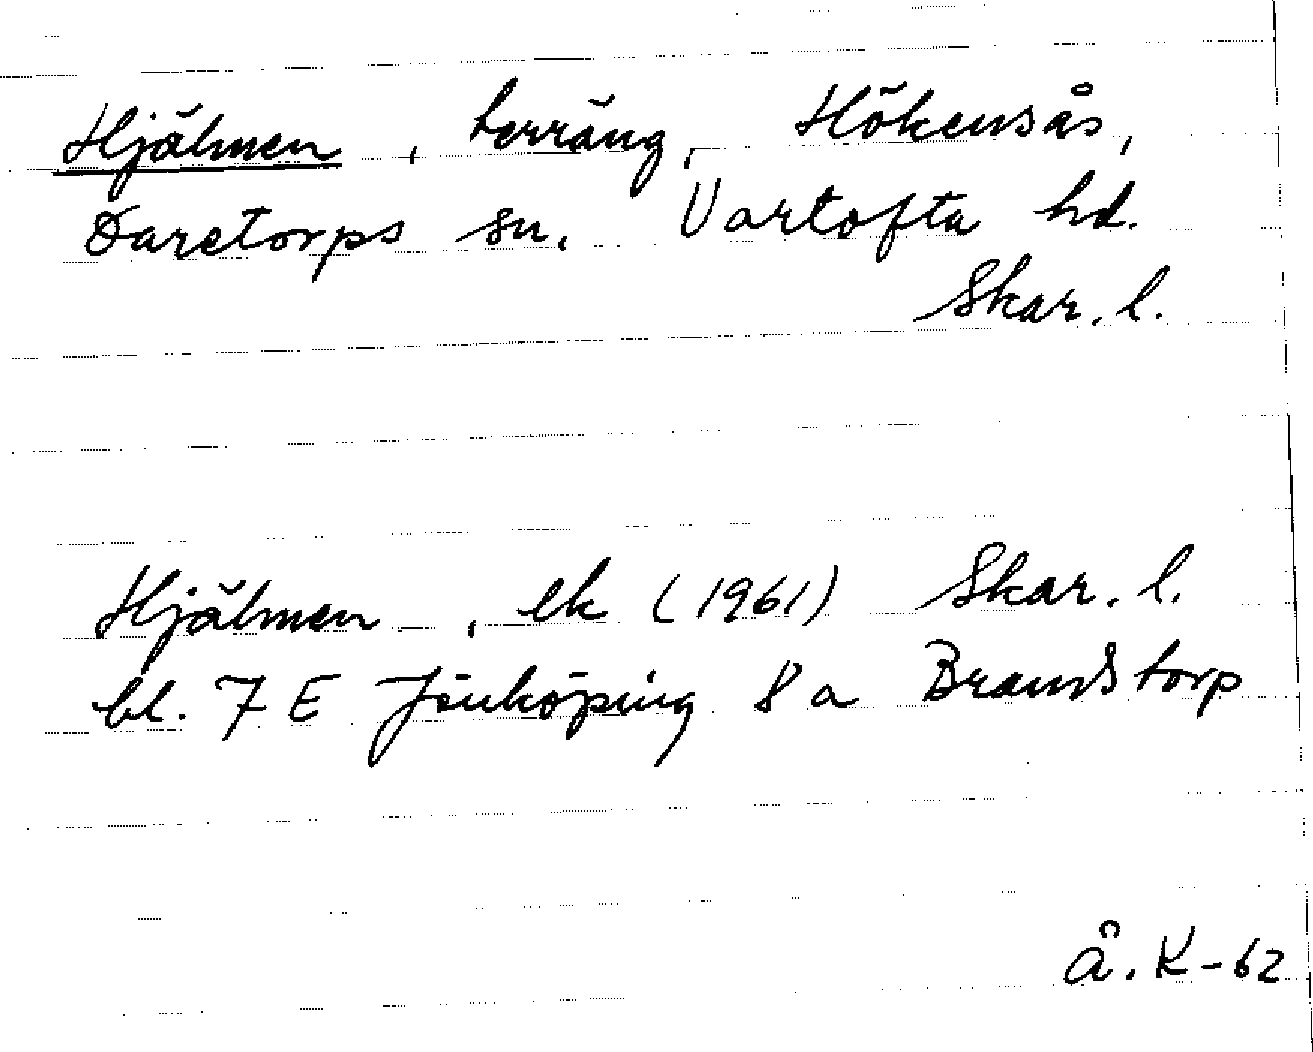 Hjälmen, terräng, Hökensås,
Daretorps sn. Vartofta hd.
Skar. l.
Hjälmen, ek (1961) Skar. l.
bl. 7 E Jönköping 8 a Brandstorp
Å. K-62